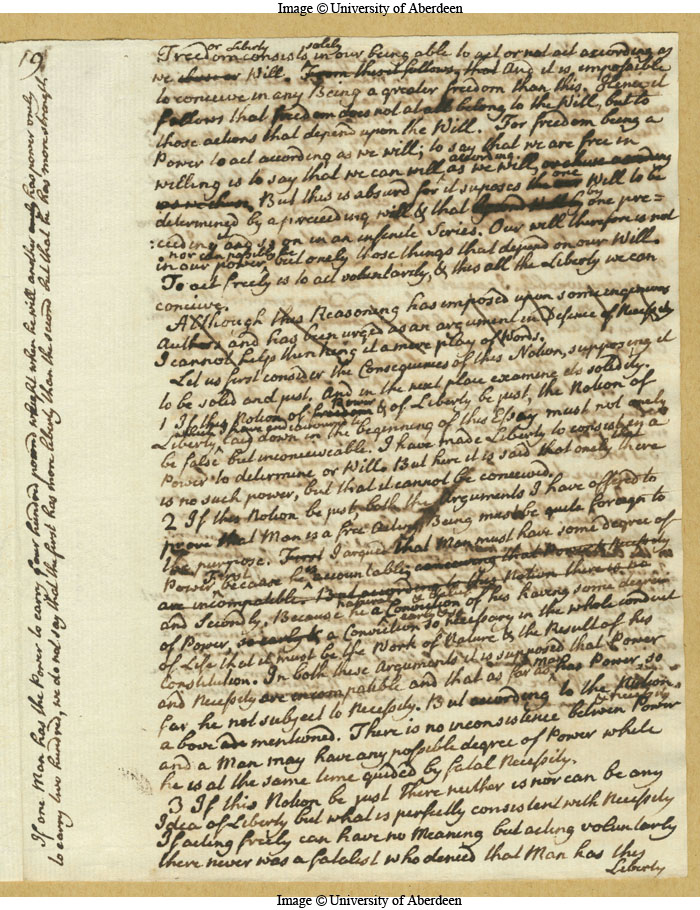 Image © University of Aberdeen
19
Freedom or Liberty consists solely in our being able to act or not act according as
we chuse or Will. From this it follows, that And it is impossible
to conceive in any Being a greater freedom than this. Hence it
follows that freedom does not at all belong to the Will, but to
those actions that depend upon the Will. For freedom being a
Power to act according as we will; to say that we are free in
willing is to say that we can will according as we will, or chuse according
as we chuse. But this is absurd for it suposes the one Will to be
determined by a preceeding will & that by one pre=
:ceeding and so on in an infinite Series. Our will therefore is not
nor can possibly be
in our power, but onely those things that depend on our Will.
To act freely is to act voluntarly, & this all the Liberty we can
conceive.
Although this Reasoning has imposed upon some ingenious
Authors and has been urged as an argument in Defence of Necessity
I cannot help thinking it a mere play of Words.
Let us first consider the Consequences of this Notion, supposing it
to be solid and just. And in the next place examine its solidity.
1 If this Notion of freedom Power & of Liberty be just, the Notion of
Liberty which I have endeavoured to laid down in the beginning of this Essay must not onely
be false but inconceivable. I have made Liberty to consist in a
Power to determine or Will. But here it is said that onely that there
is no such power, but that it cannot be conceived.
2 If this Notion be just, both the Arguments I have offered to
prove that Man is a free acting Being must be quite foreign to
the purpose. First I argued that Man must have some degree of
Power, First because he is accountable; conceiving that Power & Necessity
are incompatible. But according to this Notion there is no
and Secondly, Because he has naturally & early a Conviction of his having some degree
of Power, so early & a Conviction so necessary in the whole conduct
of Life that it must be the Work of Nature & the Result of his
Constitution. In both these Arguments it is supposed that Power
and Necessity are incompatible and that as far as Man has Power, so
far he not subject to Necessity. But according to the Notion
above mentioned. There is no inconsistence between Power & Necessity
and a Man may have any possible degree of Power while
he is at the same time guided by fatal Necessity.
3 If this Notion be just There neither is nor can be any
Idea of Liberty but what is perfectly consistent with Necessity
If acting freely can have no Meaning but acting voluntarly
there never was a fatalist who denied that Man has this
Liberty
If one Man has the Power to carry four hundred pound weight when he will another has power onely
to carry two hundred, we do not say that the first has more liberty than the second but that he has more strength
Image © University of Aberdeen